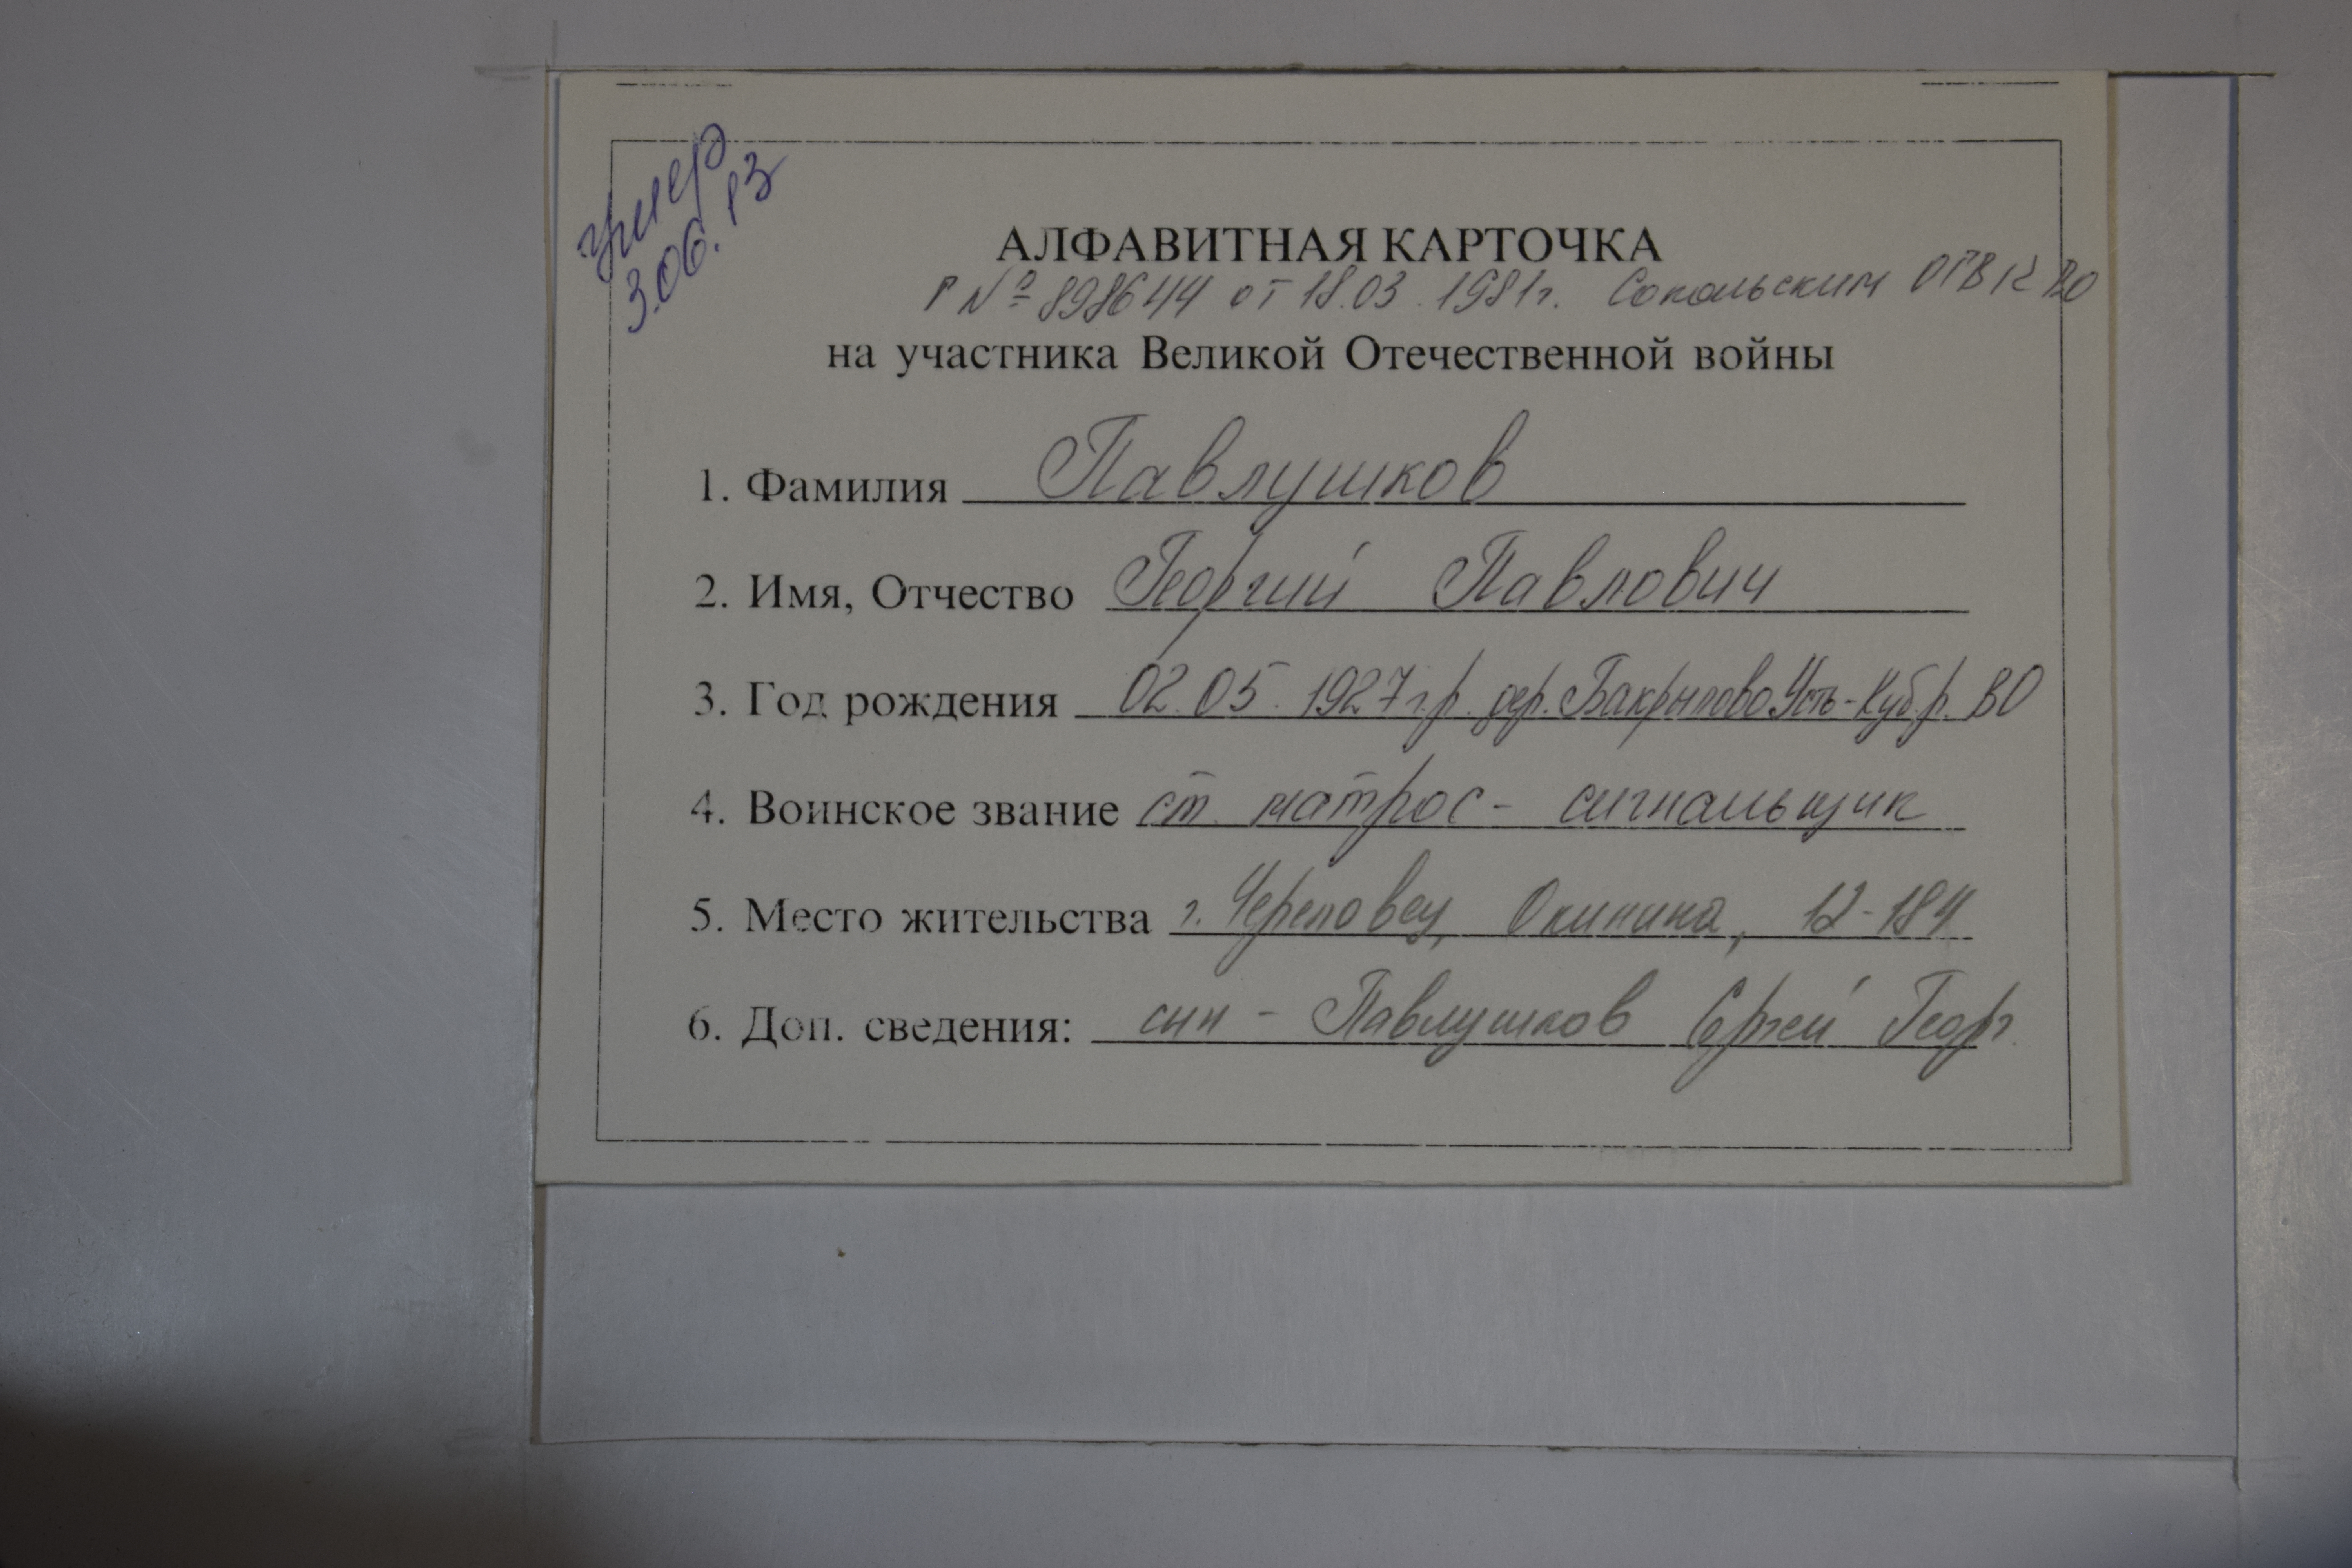 умер
3.06.13
АЛФАВИТНАЯ КАРТОЧКА
Р № 898644 от 18.03.1981г. Сокольским ОГВК ВО
на участника Великой Отечественной войны
1. Фамилия Павлушков
2. Имя, Отчество Георгий Павлович
3. Год рождения 02.05.1927 г.р. дер. Бакрылово Усть-Куб.р. ВО
4. Воинское звание ст. матрос - сигнальщик
5. Место жительства г. Череповец, Окинина, 12-184
6. Доп. сведения: сын - Павлушков Сергей Георг.